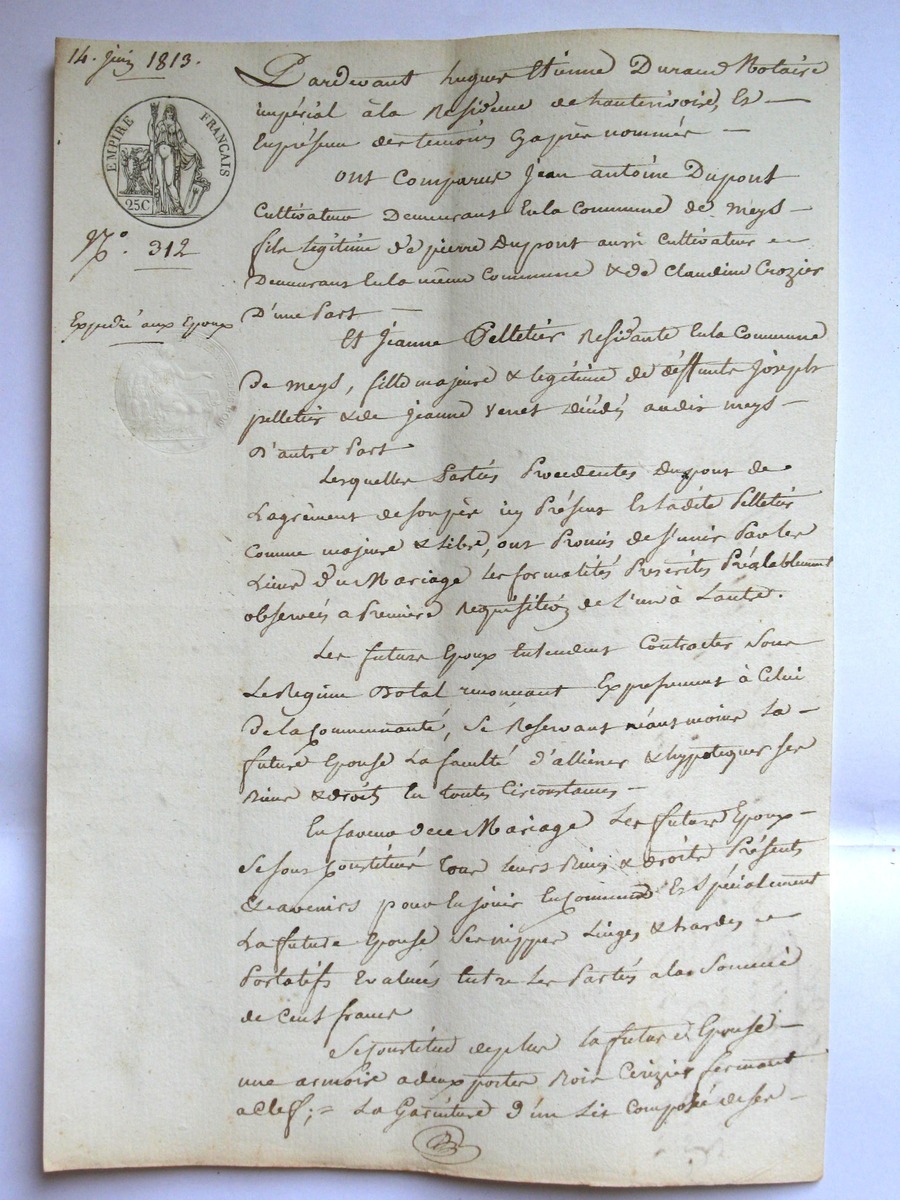 14. juin 1813.
EMPIRE FRANÇAIS
25C
N.° 312
Expedié aux Epoux
Pardevant hugues Etienne Durand Notaire
impérial à la Residence de hauterivoire, Et
En présence des temoins Cy après nommés
ont comparus Jean antoine Dupont
Cultivateur Demeurant En la Commune de meys
fils legitime de pierre Dupont aussi Cultivateur
Demeurant En la même Commune & de Claudine Crozier
D'une Part
Et Jeanne Pelletier Residante En la Commune
De meys, fille majeure & legitime de déffunts Joseph
pelletier & de Jeanne Venet décédés audit meys
D'autre Part
Lesquelles Parties Procedentes Dupont de
L'agrèment de son père icy Présent Et ladite Pelletier
Comme majeure & Libre, ont Promis de s'unir Par les
Liens du Mariage les formalités Prescrites Préalablement
observeés a Premiere Requisition de l'un à Lautre.
Les futurs Epoux Entendent Contracter Sous
Le Regime Dotal renonçant Expressement à Celui
De la Communauté, se Reservant néantmoins La
future Epouse La faculté d'alliener & hypotequer ses
Biens & droits En toutes Circonstances
En faveur de ce Mariage Les futurs Epoux
Se sont Constitués tous leurs Biens & droits Présents
& avenirs pour En jouir En Commun Et Spécialement
La future Epouse Ses nippes Linges & hardes
Portatifs Evalués Entre Les Parties a la Somme
de Cent francs
Se Constitue de plus la future Epouse
une armoire a deux portes Bois Cerizier fermant
a Clef; = La Garniture d'un Lit Composée de ses